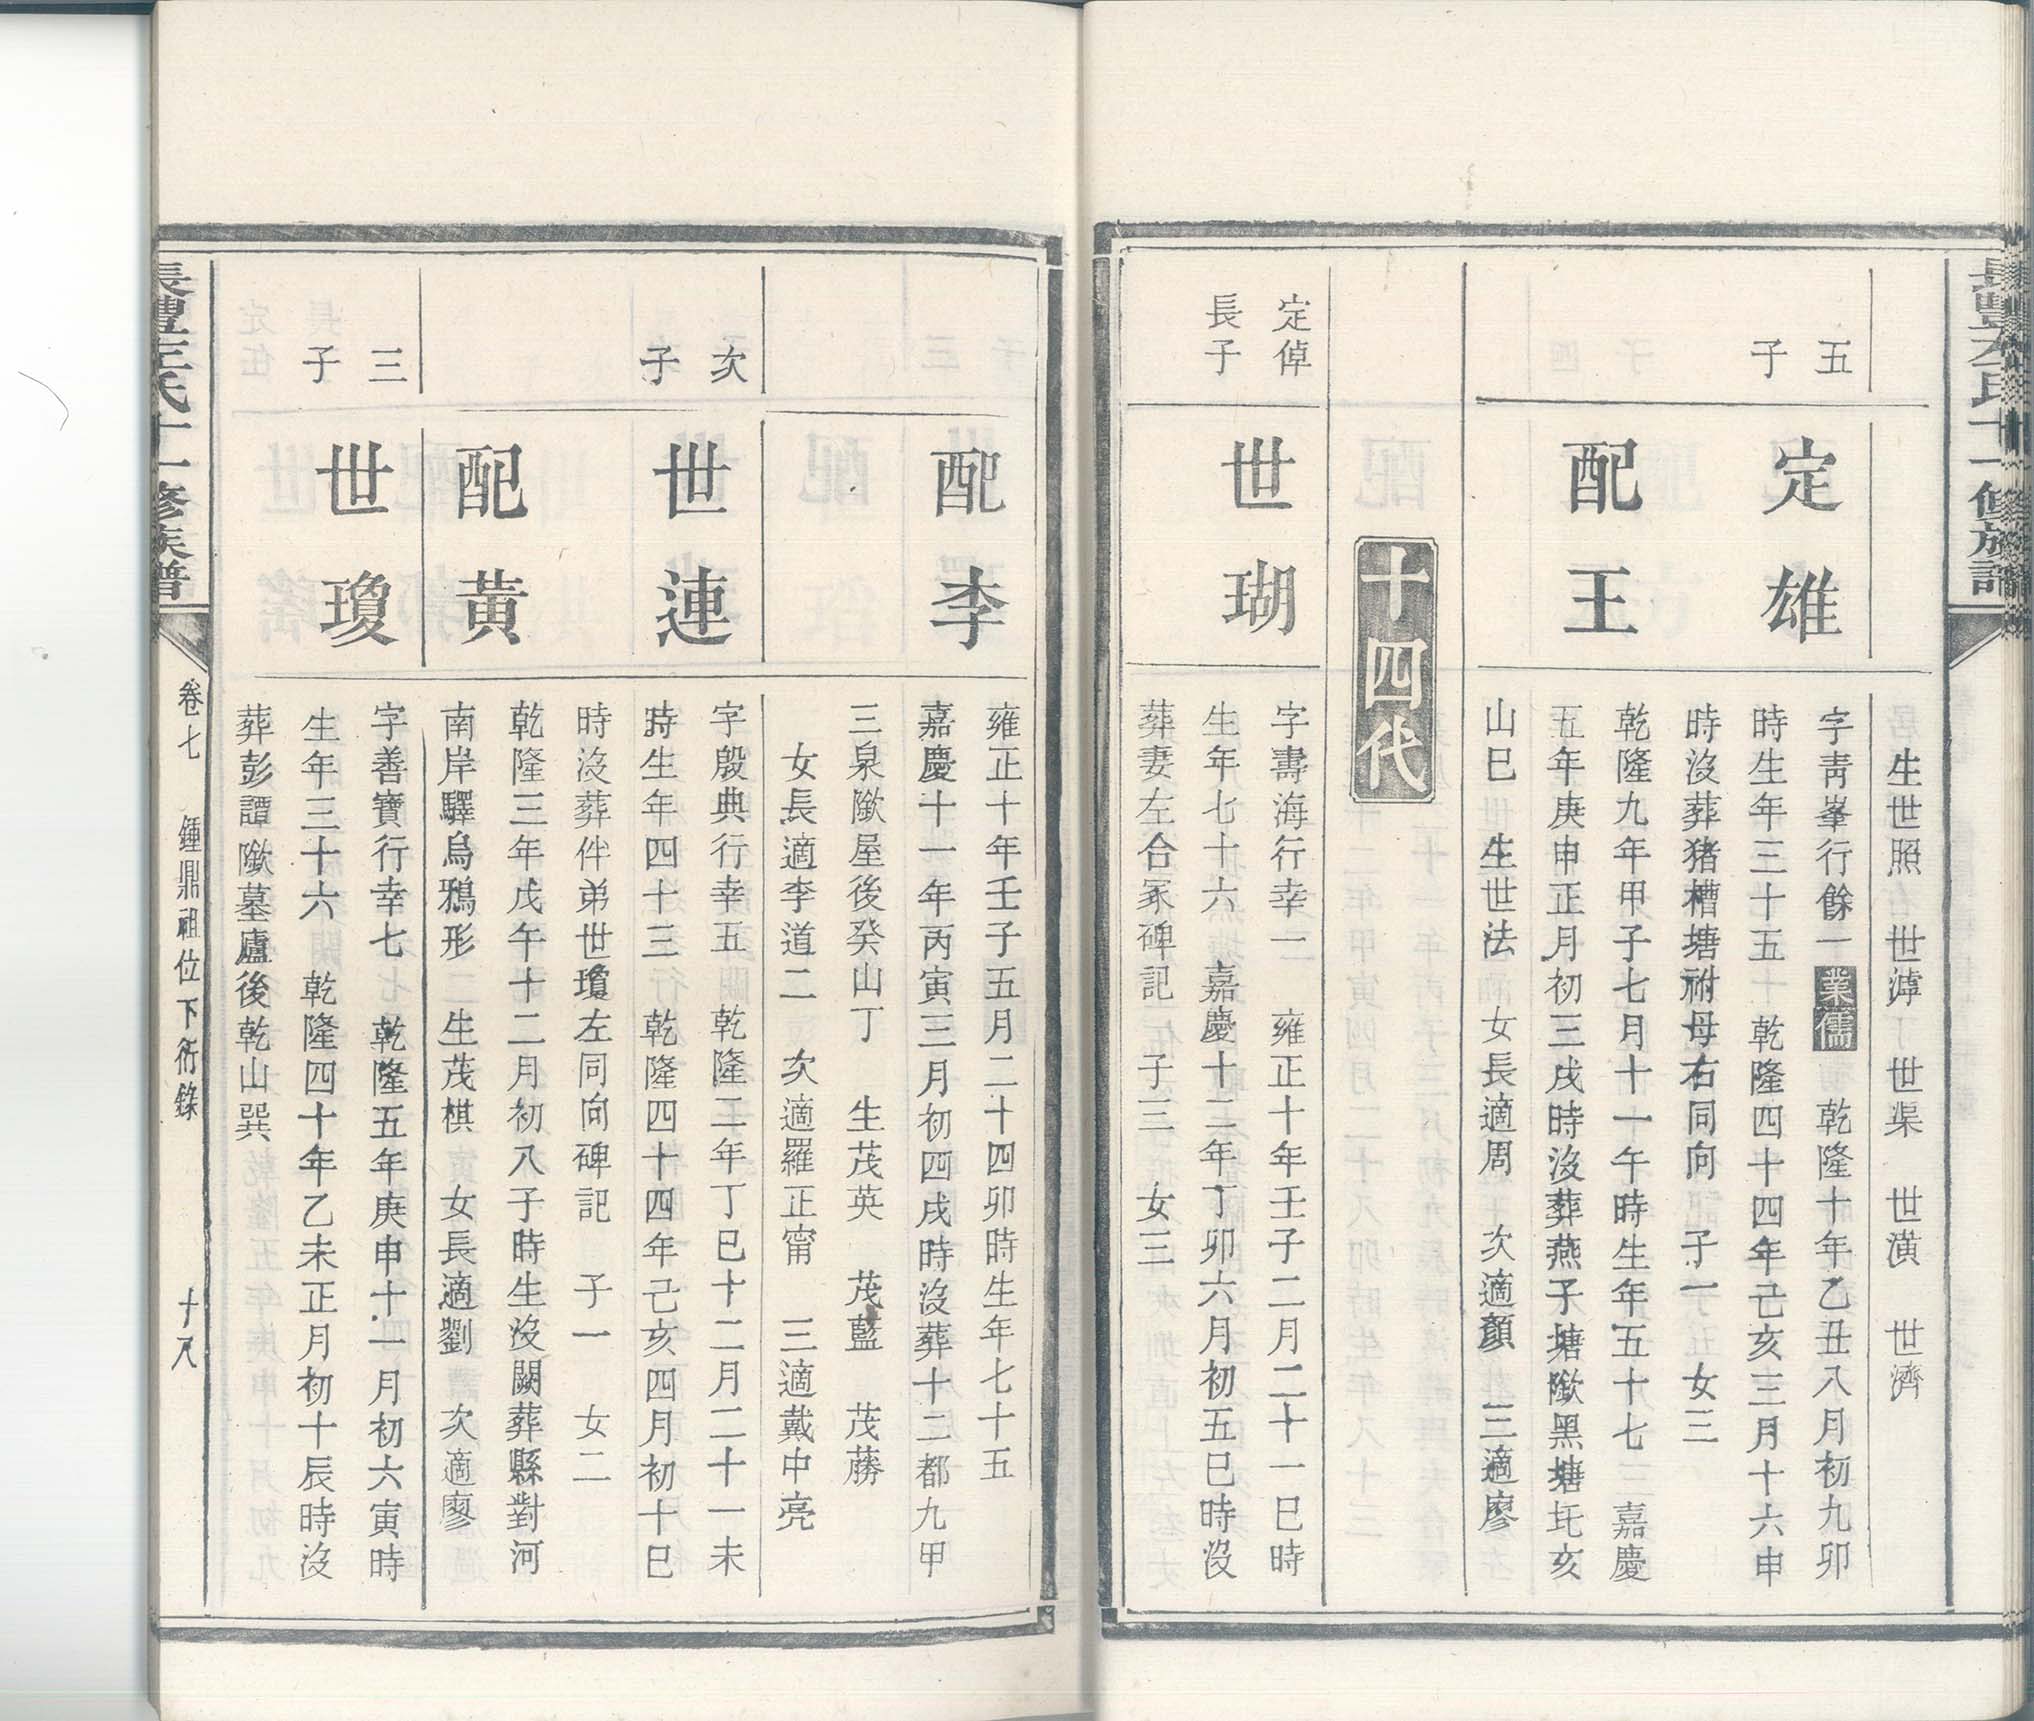 生世照　世𣾷　世渠　世潢　世濟
五子
定雄
字靑峯行餘一業儒　乾隆十年乙丑八月初九卯
時生年三十五　乾隆四十四年己亥三月十六申
時沒葬猪槽塘祔母右同向　子一　女三
配王
乾隆九年甲子七月十一午時生年五十七　嘉慶
五年庚申正月初三戌時沒葬燕子塘㘭黑塘坵亥
山巳　生世法　女長適周　次適顏　三適廖
十四代
定倬長子
世瑚
字壽海行幸一　雍正十年壬子二月二十一巳時
生年七十六　嘉慶十二年丁卯六月初五巳時沒
葬妻左合冢碑記　子三　女三
配李
雍正十年壬子五月二十四卯時生年七十五
嘉慶十一年丙寅三月初四戌時沒葬十二都九甲
三泉㘭屋後癸山丁　生茂英　茂藍　茂蕂
女長適李道二　次適羅正甯　三適戴中亮
次子
世連
字殷典行幸五　乾隆二年丁巳十二月二十一未
時生年四十三　乾隆四十四年己亥四月初十巳
時沒葬伴弟世瓊左同向碑記　子一　女二
配黃
乾隆三年戊午十二月初八子時生沒闕葬縣對河
南岸驛烏鴉形　生茂棋　女長適劉　次適廖
三子
世瓊
字善寶行幸七　乾隆五年庚申十一月初六寅時
生年三十六　乾隆四十年乙未正月初十辰時沒
葬彭譚㘭墓廬後乾山巽
氏十一修族譜
卷七　鍾鼎祖位下衍錄　十八